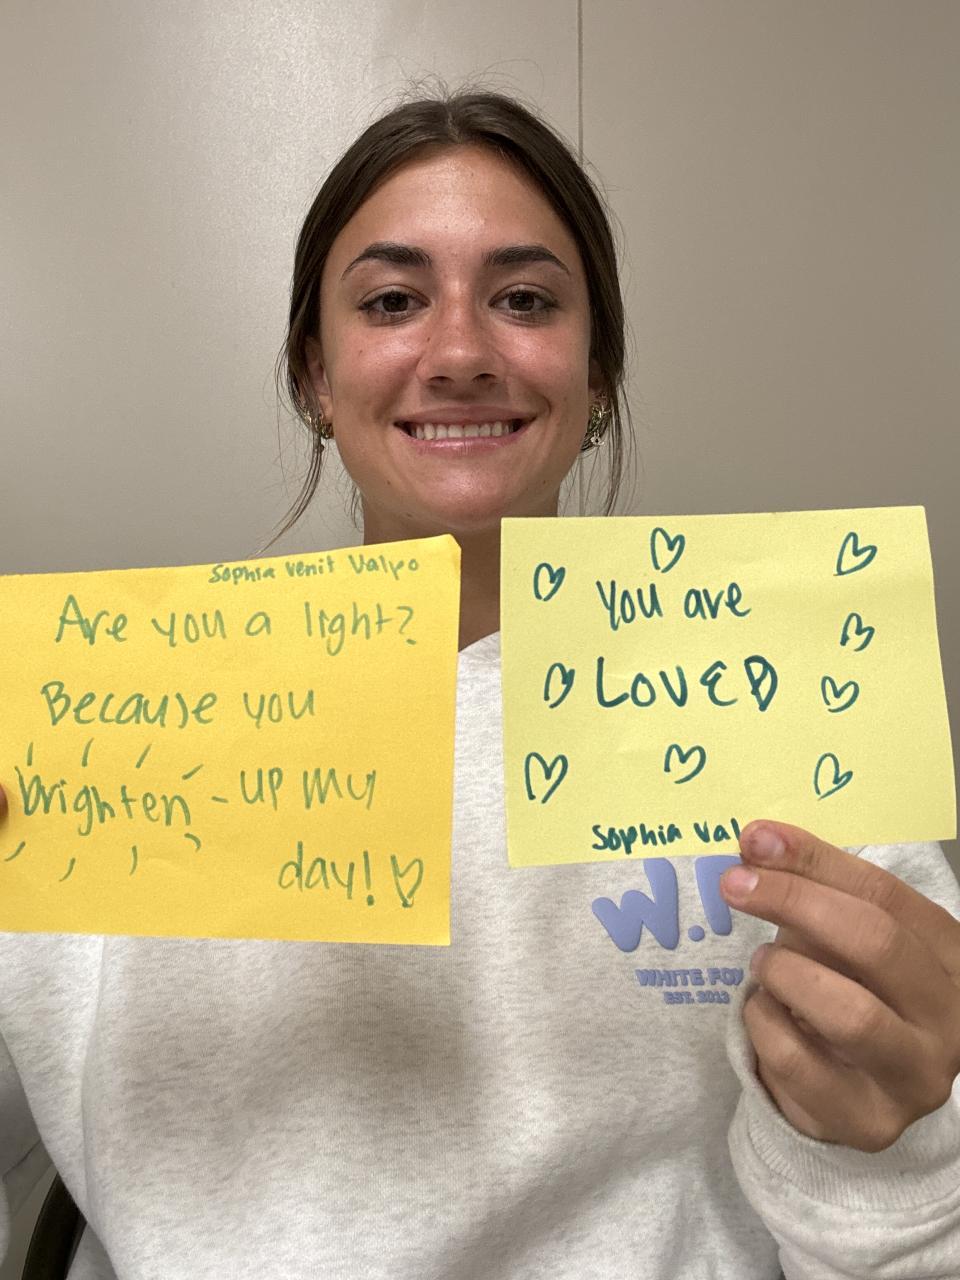 Sophia Venit Valpo
Are you a light?
Because you
brighten - up my
day!
You are
LOVED
Sophia Val
W.F
WHITE FOX
EST. 2013